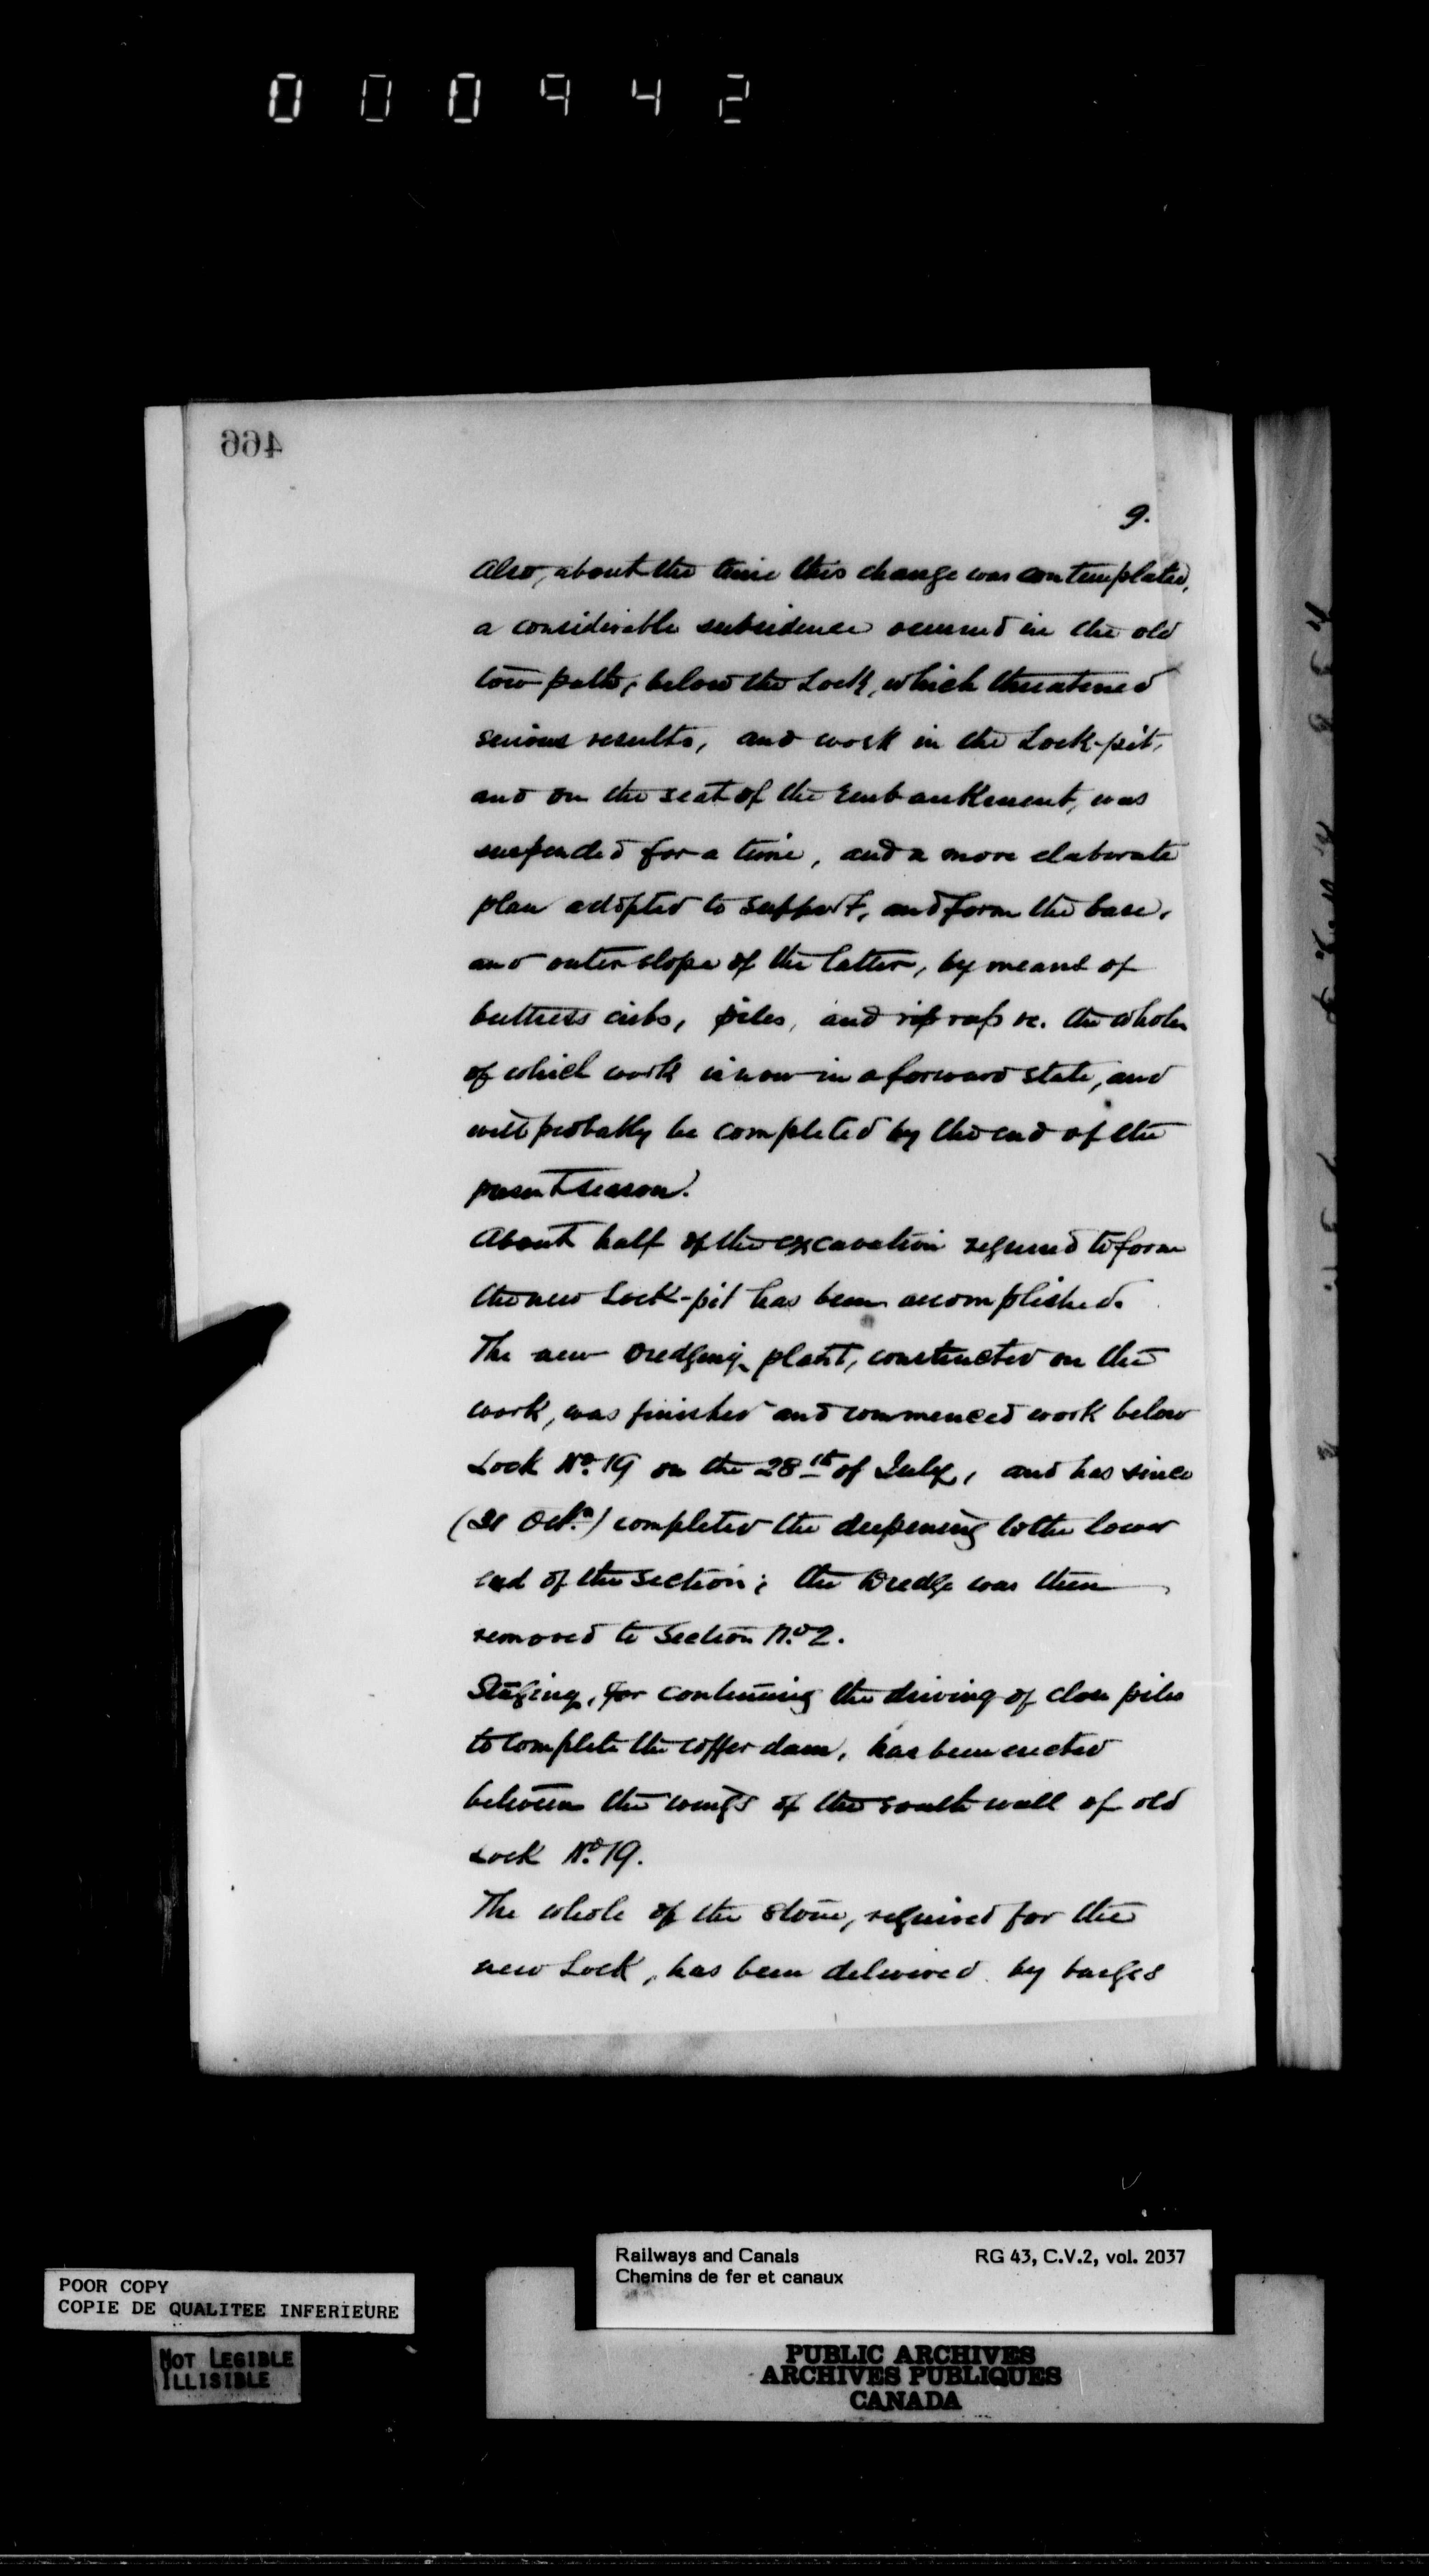 000942
466
9.
Also, about the time this change was contemplated,
a considerable subsidence occurred in the old
tow path, below the Lock, which threatened
serious results, and work in the Lock-pit,
and on the seat of the Embankment, was
suspended for a time, and a more elaborate
plan adopted to support, and form the base,
and outer slope of the latter, by means of
buttress cribs, piles, and rip rap &c. the whole
of which work is now in a forward state, and
will probably be completed by the end of the
present season.
About half of the excavation required to form
the new Lock-pit has been accomplished.
The new Dredging plant, constructed on the
work, was finished and commenced work below
Lock No. 19 on the 28th of July, and has since
Oct.) completed the deepening to the lower
end of the section; the Dredge was then
removed to Section No. 2.
Staging, for continuing the driving of close piles
to complete the coffer dam, has been erected
between the wings of the south wall of old
Lock No. 19.
The whole of the stone, required for the
new Lock, has been delivered by barges
Railways and Canals
Chemins de fer et canaux
RG 43, C.V.2, vol. 2037
POOR COPY
COPIE DE QUALITEE INFERIEURE
NOT LEGIBLE
ILLISIBLE
PUBLIC ARCHIVES
ARCHIVES PUBLIQUES
CANADA